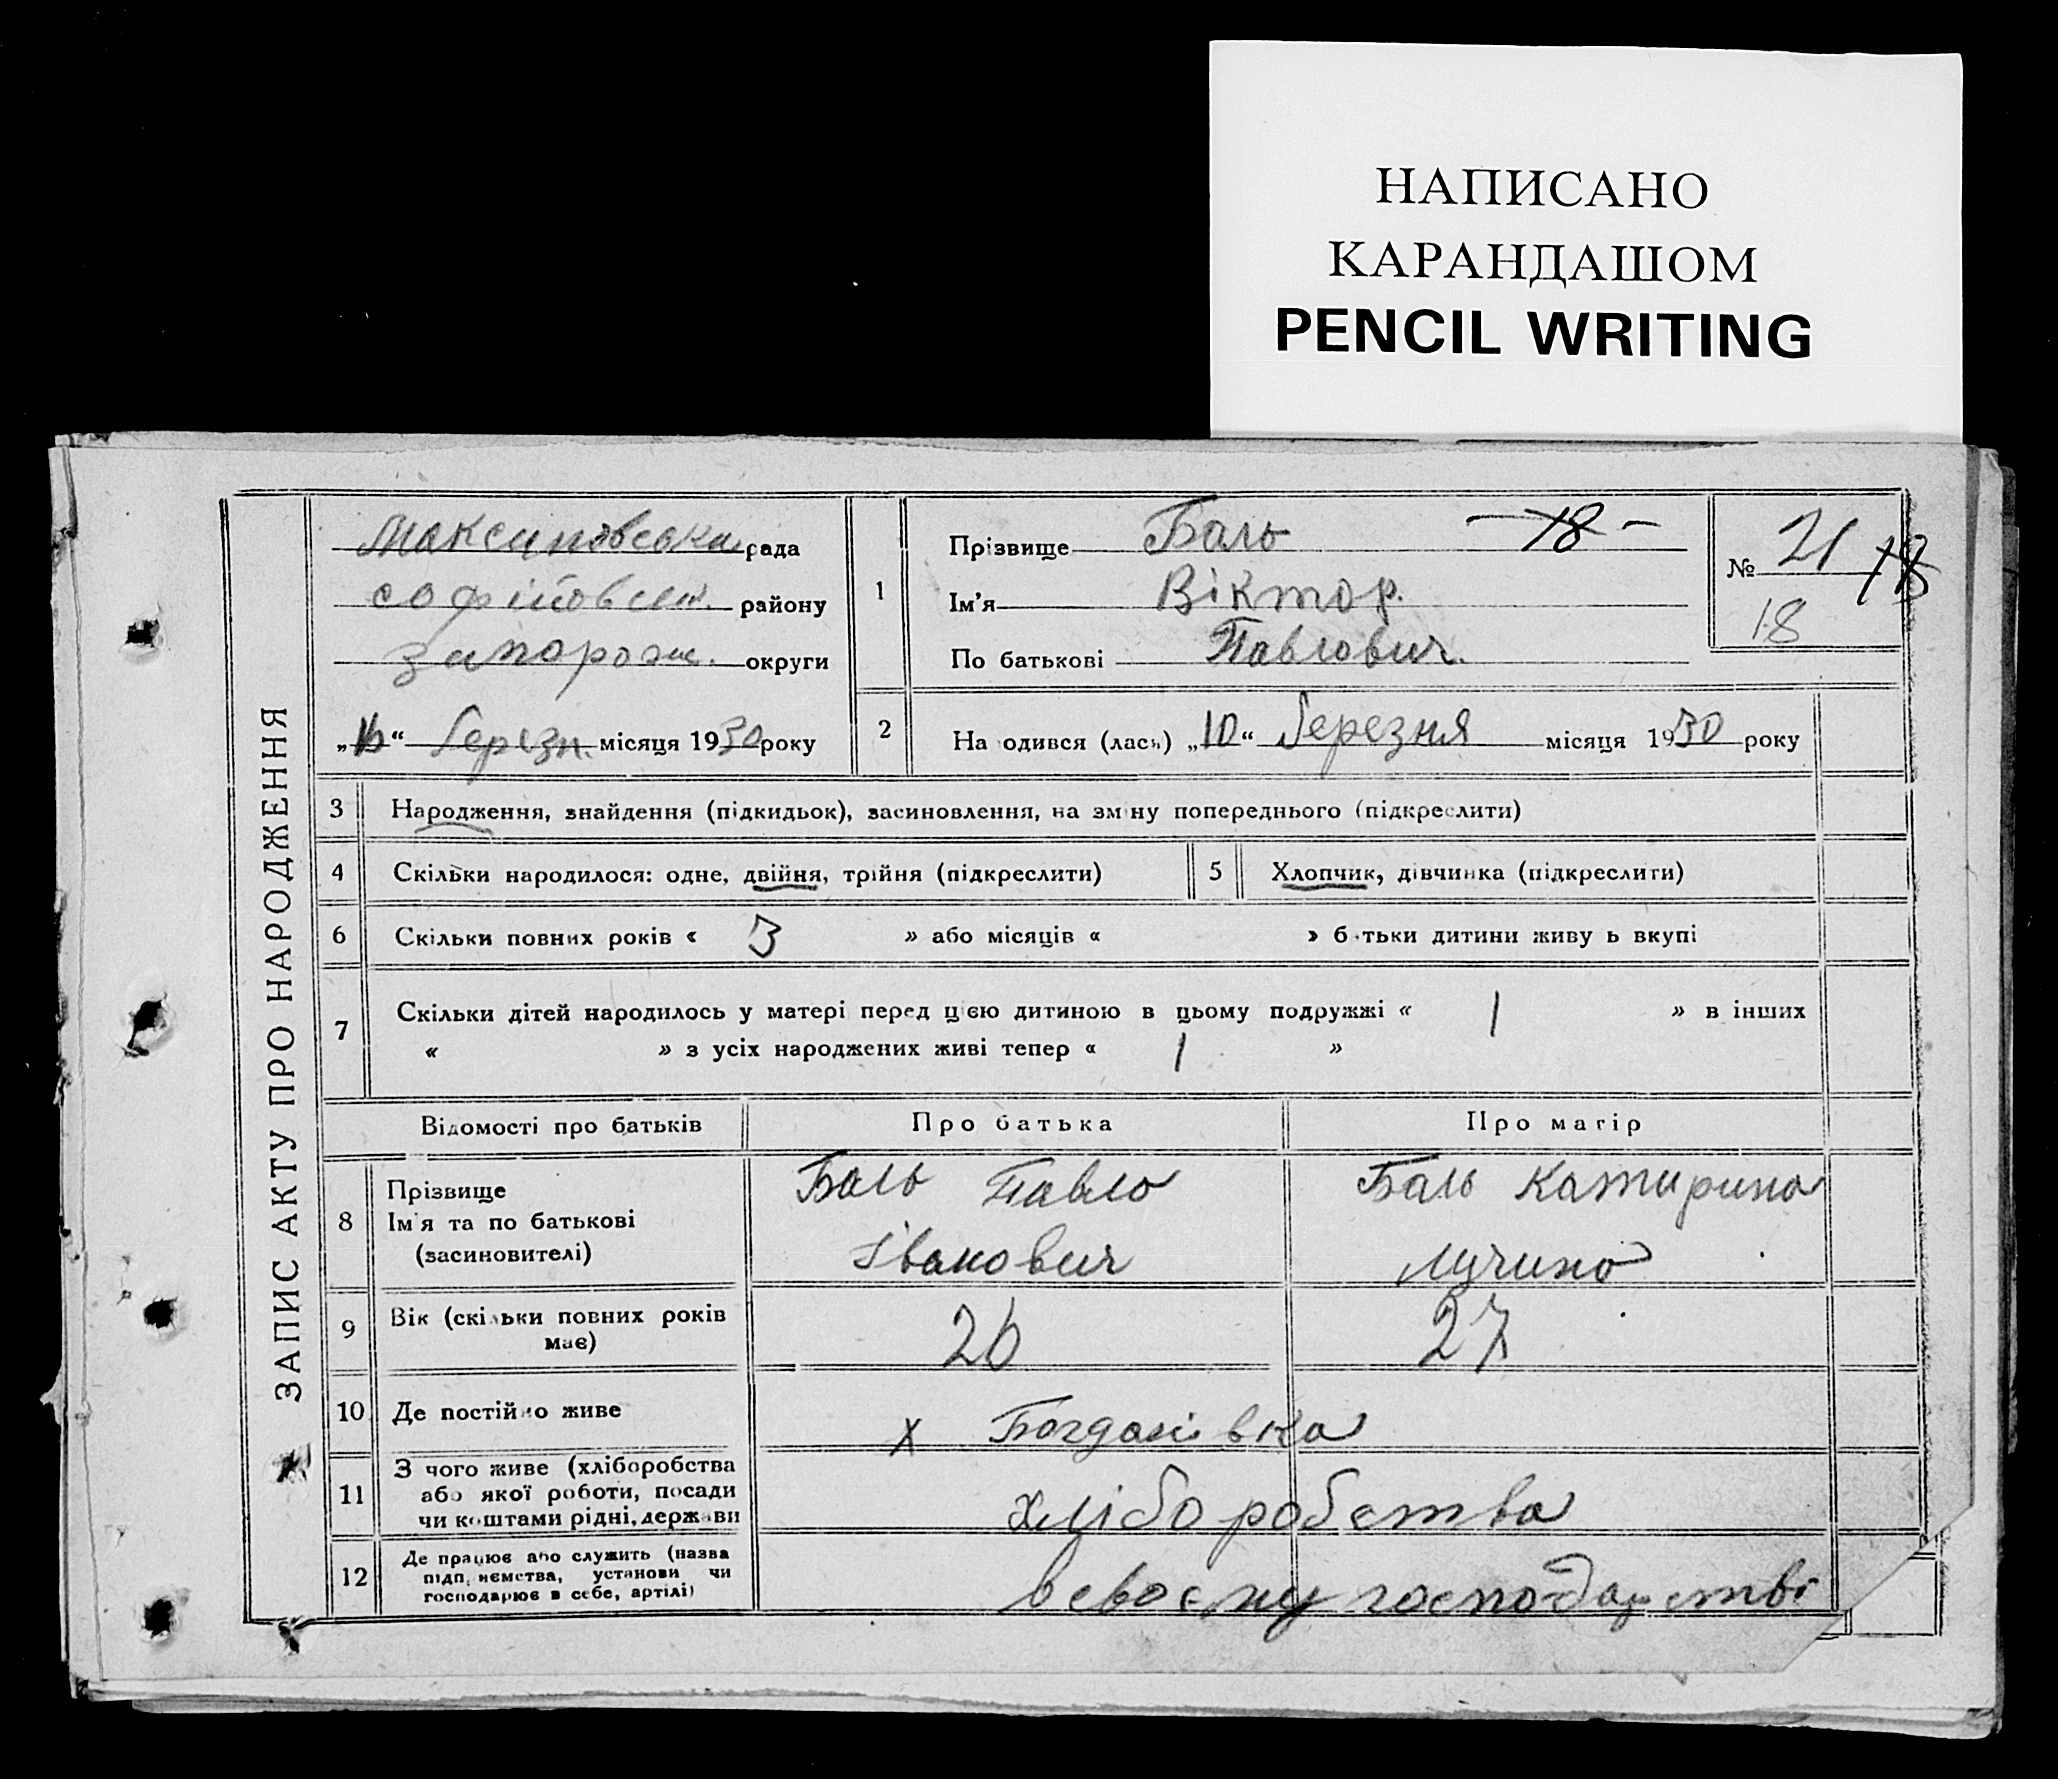 НАПИСАНО
КАРАНДАШОМ
PENCIL WRITING
ЗАПИС АКТУ ПРО НАРОДЖЕННЯ
рада
Софіївськ. району
Запорож. округи
„16“ березн. місяця 1930 року
1 Прізвище Баль —18—
Ім'я Віктор.
По батькові Павлович.
№ 21 18
18
2 На одився (лась) „10“ березня місяця 1930 року
3 Народження, знайдення (підкидьок), засиновлення, на зміну попереднього (підкреслити)
4 Скільки народилося: одне, двійня, трійня (підкреслити) 5 Хлопчик, дівчинка (підкреслити)
6 Скільки повних років « 3 » або місяців « » б тьки дитини живу ь вкупі
7 Скільки дітей народилось у матері перед цією дитиною в цьому подружжі « 1 » в інших
« » з усіх народжених живі тепер « 1 »
Відомості про батьків Про батька Про матір
8 Прізвище
Ім'я та по батькові
(засиновителі)
Баль Павло
Іванович
Баль Катирина
9 Вік (скільки повних років
має)
26 27
10 Де постійно живе х Богданівка
11 З чого живе (хліборобства
або якої роботи, посади
чи коштами рідні, держави
хліборобства
12 Де працює або служить (назва
підп, иємства, установи чи
господарює в себе, артілі)
в своєму господарстві